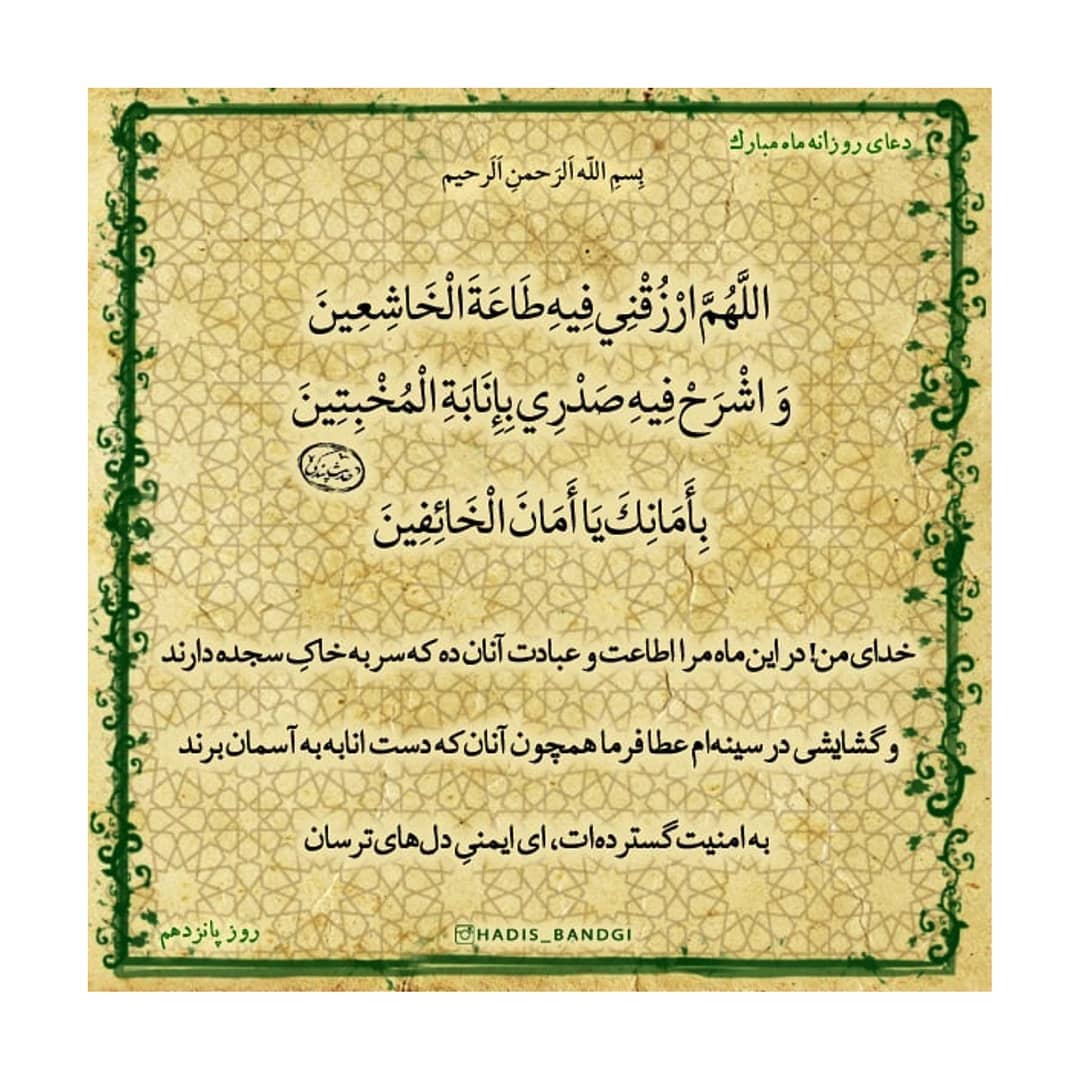 دعای روزانه ماه مبارک
بِسمِ اللّه اَلرَحمنِ اَلَرحیم
اللَّهُمَّ ارْزُقْنِي فِيهِ طَاعَةَ الْخَاشِعِينَ
وَ اشْرَحْ فِيهِ صَدْرِي بِإِنَابَةِ الْمُخْبِتِينَ
حدیث بندگی
بِأَمَانِكَ يَا أَمَانَ الْخَائِفِينَ
خدای من! در این ماه مرا اطاعت و عبادت آنان ده که سر به خاکِ سجده دارند
و گشایشی در سینه‌ام عطا فرما همچون آنان که دست انابه به آسمان برند
به امنیت گسترده‌ات، ای ایمنیِ دل‌های ترسان
روز پانزدهم
HADIS_BANDGI